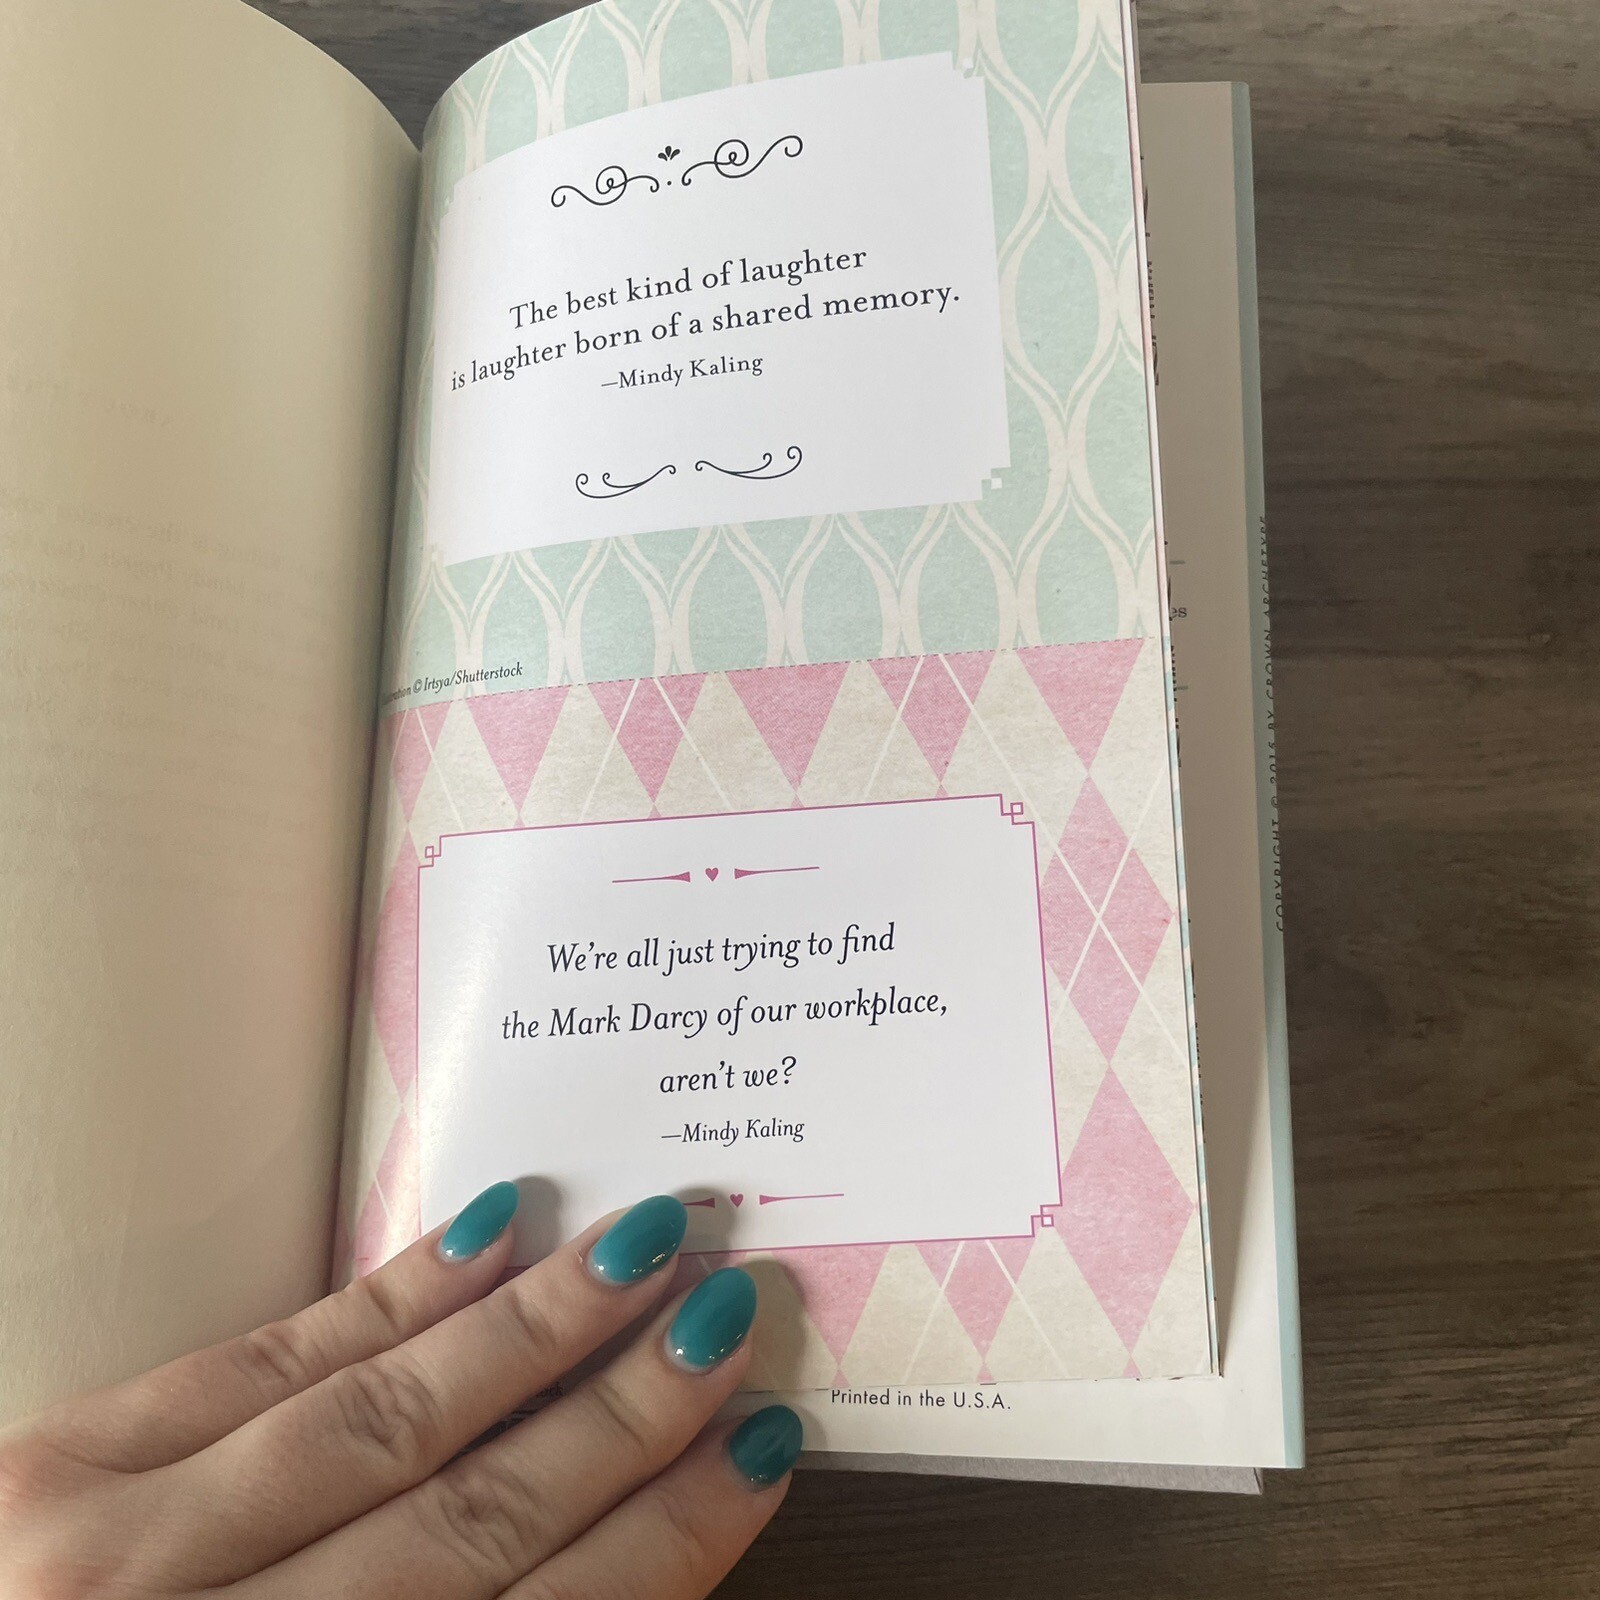 The best kind of laughter
is laughter born of a shared memory.
—Mindy Kaling
© Irtsya/Shutterstock
We're all just trying to find
the Mark Darcy of our workplace,
aren't we?
—Mindy Kaling
Printed in the U.S.A.
COPYRIGHT © 2015 BY CROWN ARCHETYPE